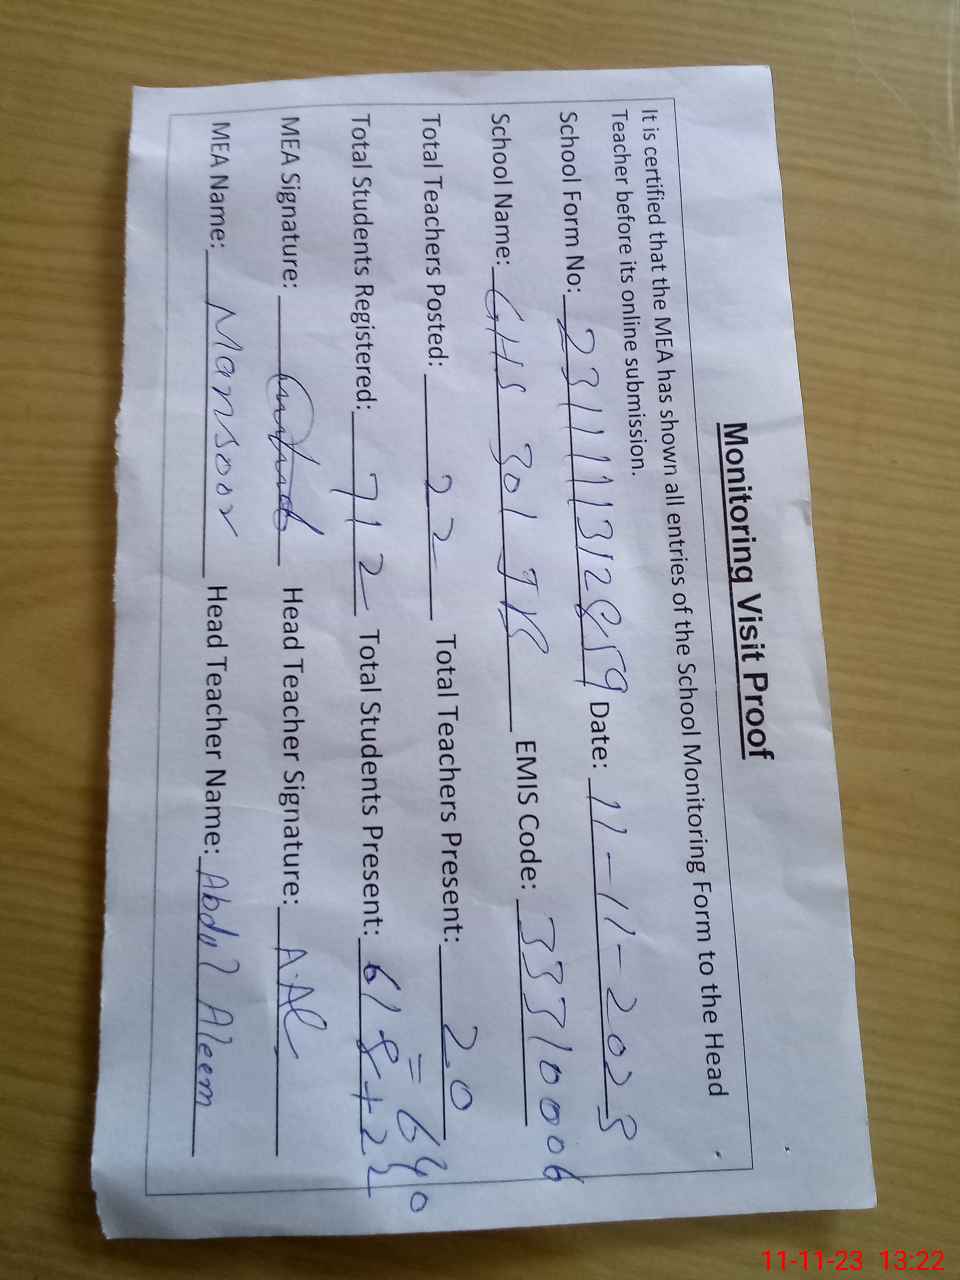 Monitoring Visit Proof
It is certified that the MEA has shown all entries of the School Monitoring Form to the Head
Teacher before its online submission.
School Form No: 231111312859 Date: 11-11-2023
School Name: GHS 301 JB EMIS Code: 33310006
Total Teachers Posted: 22 Total Teachers Present: 20
Total Students Registered: 712 Total Students Present: 618+22 = 640
MEA Signature: Head Teacher Signature:
MEA Name: Mansoor Head Teacher Name: Abdul Aleem
11-11-23 13:22